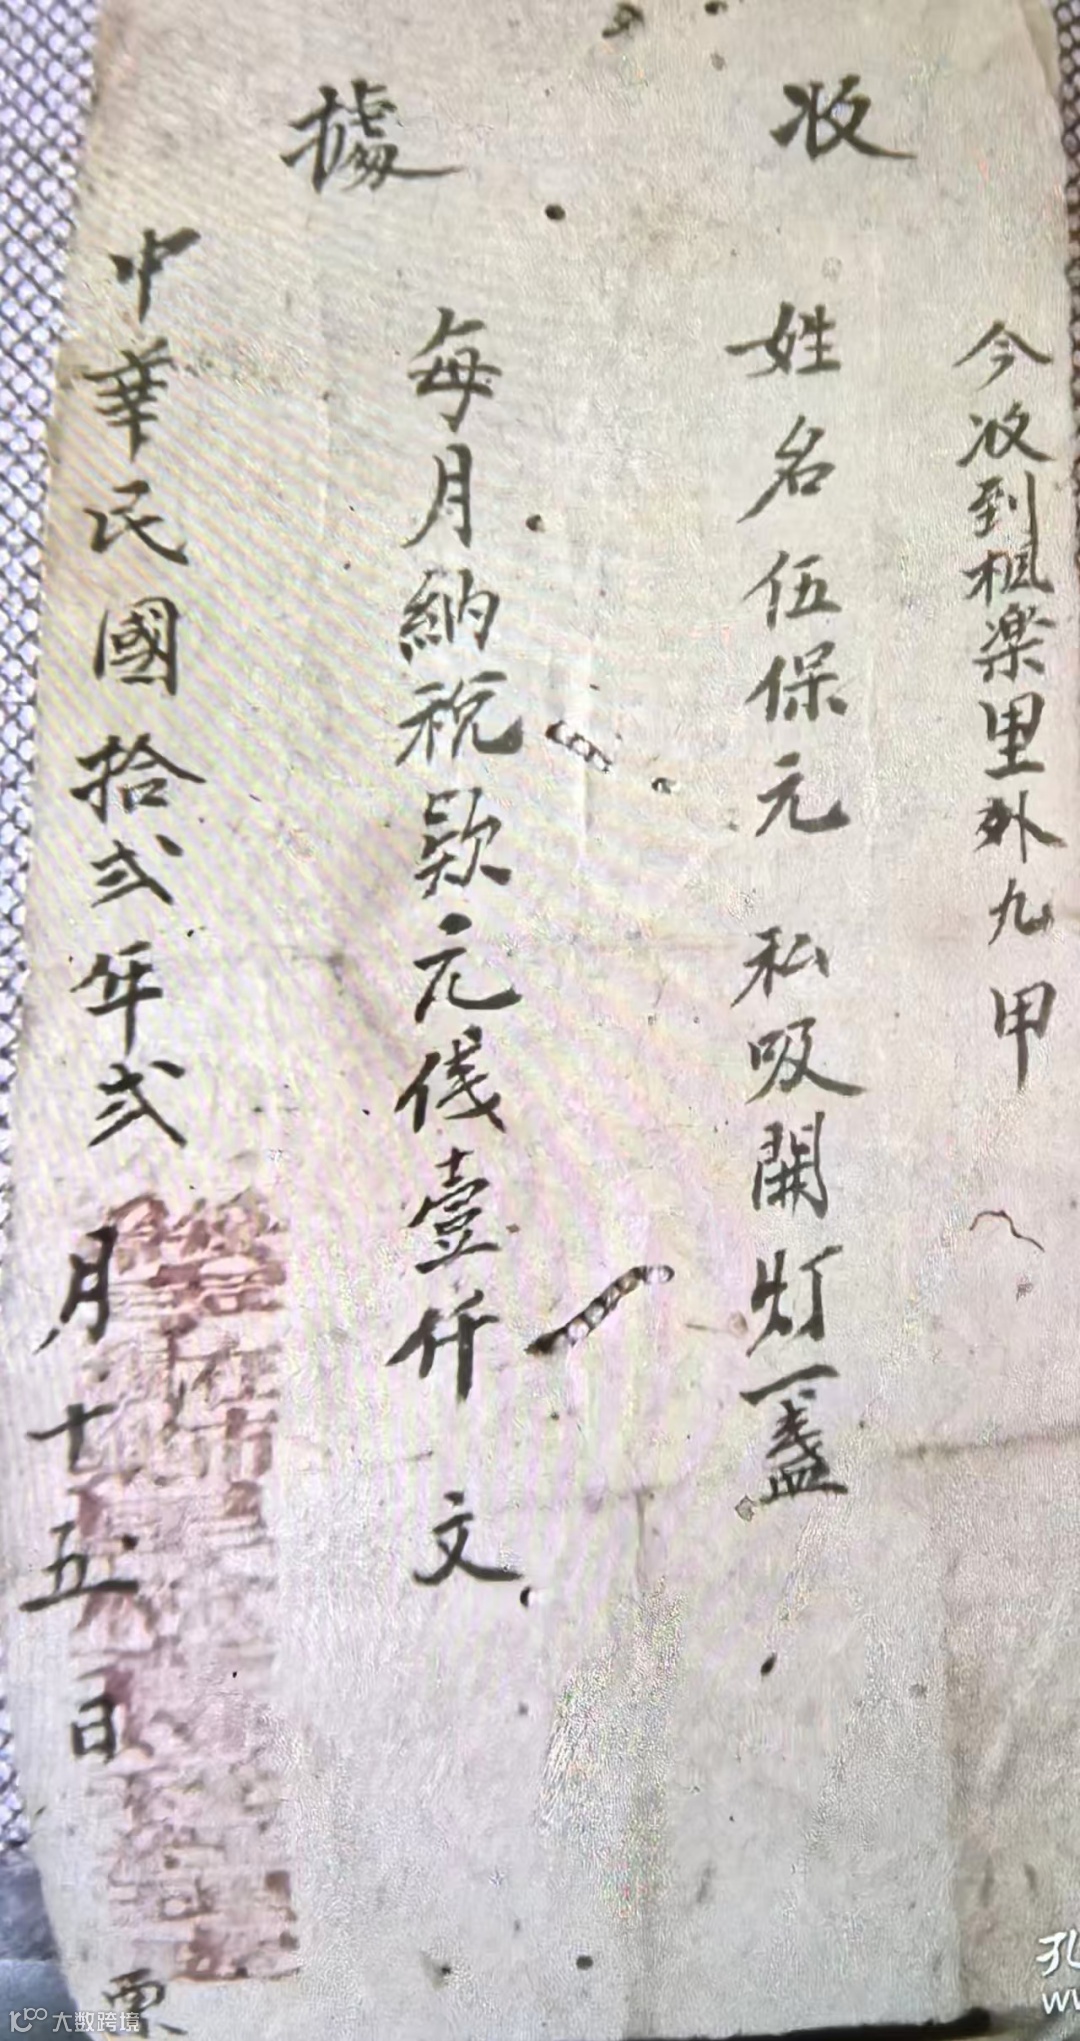 收據
今收到楓楽里外九甲
姓名伍保元 私吸開灯一盞
每月納税欵元伐壹仟 文
中華民國拾弍年弍月十五日 票
大数跨境
孔